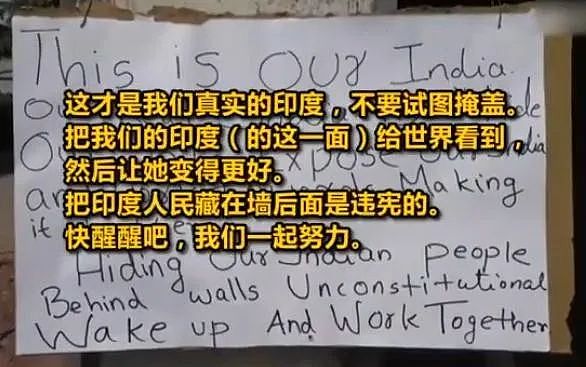 This is Our India
这才是我们真实的印度，不要试图掩盖。
把我们的印度（的这一面）给世界看到，
India
然后让她变得更好。
Making
把印度人民藏在墙后面是违宪的。
it
快醒醒吧，我们一起努力。
Hiding Our Indian people
Behind walls Unconstitutional
Wake up And Work Together